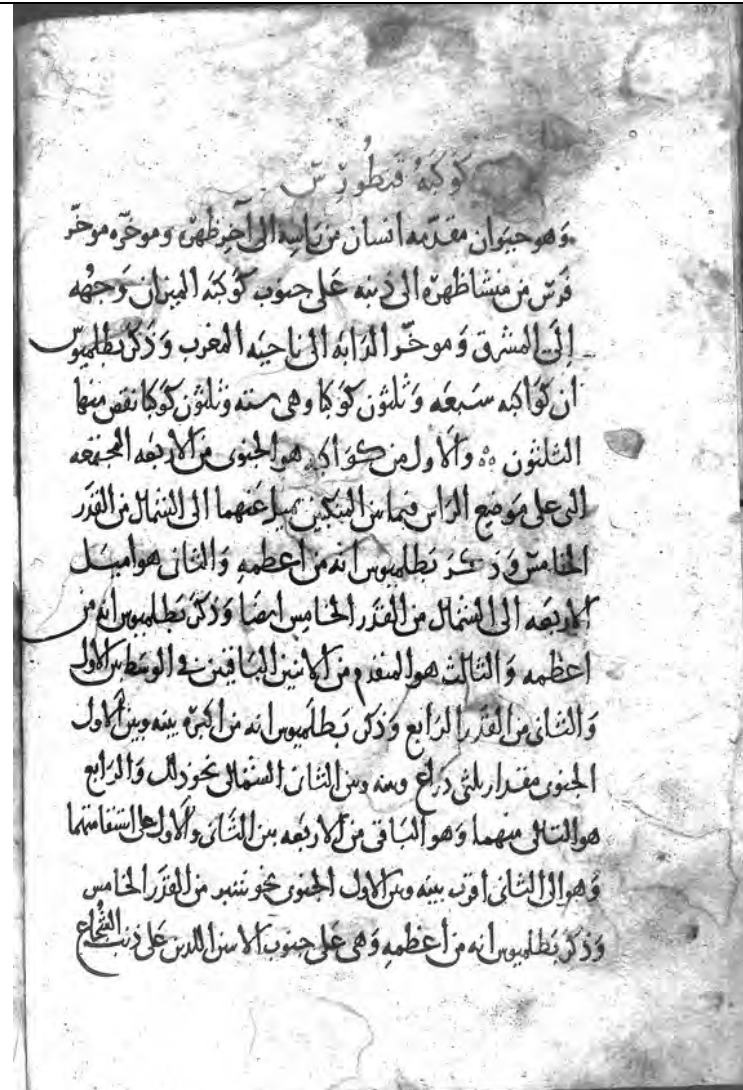 كوكبه قنطورس
وهو حيوان مقدمه انسان من راسه الى آخر ظهره وموخره موخر
فرس من منشا ظهره الى ذنبه على جنوب كوكبه الميزان وجهه
إلى المشرق وموخر الدابه الى ناحيه المغرب وذكر بطلميوس
ان كواكبه سبعه وثلثون كوكبا وهى سته وثلثون كوكبا نقص منها
الثلثون ٥٥ والاول من كواكبه هو الجنوبى من الاربعه المجتمعه
التى على موضع الراس فيما بين المنكبين تميل عنهما الى الشمال من القدر
الخامس وذكر بطلميوس انه من اعظمه والثانى هو اميل
الاربعه الى الشمال من القدر الخامس ايضا وذكر بطلميوس انه من
اعظمه والثالث هو المتقدم من الاثنين الباقيين فى الوسط بين الاول
والثانى من القدر الرابع وذكر بطلميوس انه من اكبره بينه وبين الاول
الجنوبى مقدار ثلثى ذراع وبينه وبين الثانى الشمالى نحو ذلك والرابع
هو التالى منهما وهو الباقى من الاربعه بين الثانى والاول على استقامتهما
وهو الى الثانى اقرب بينه وبين الاول الجنوبى نحو شبر من القدر الخامس
وذكر بطلميوس انه من اعظمه وهى على جنوب الاثنين اللذين على ذنب الشجاع